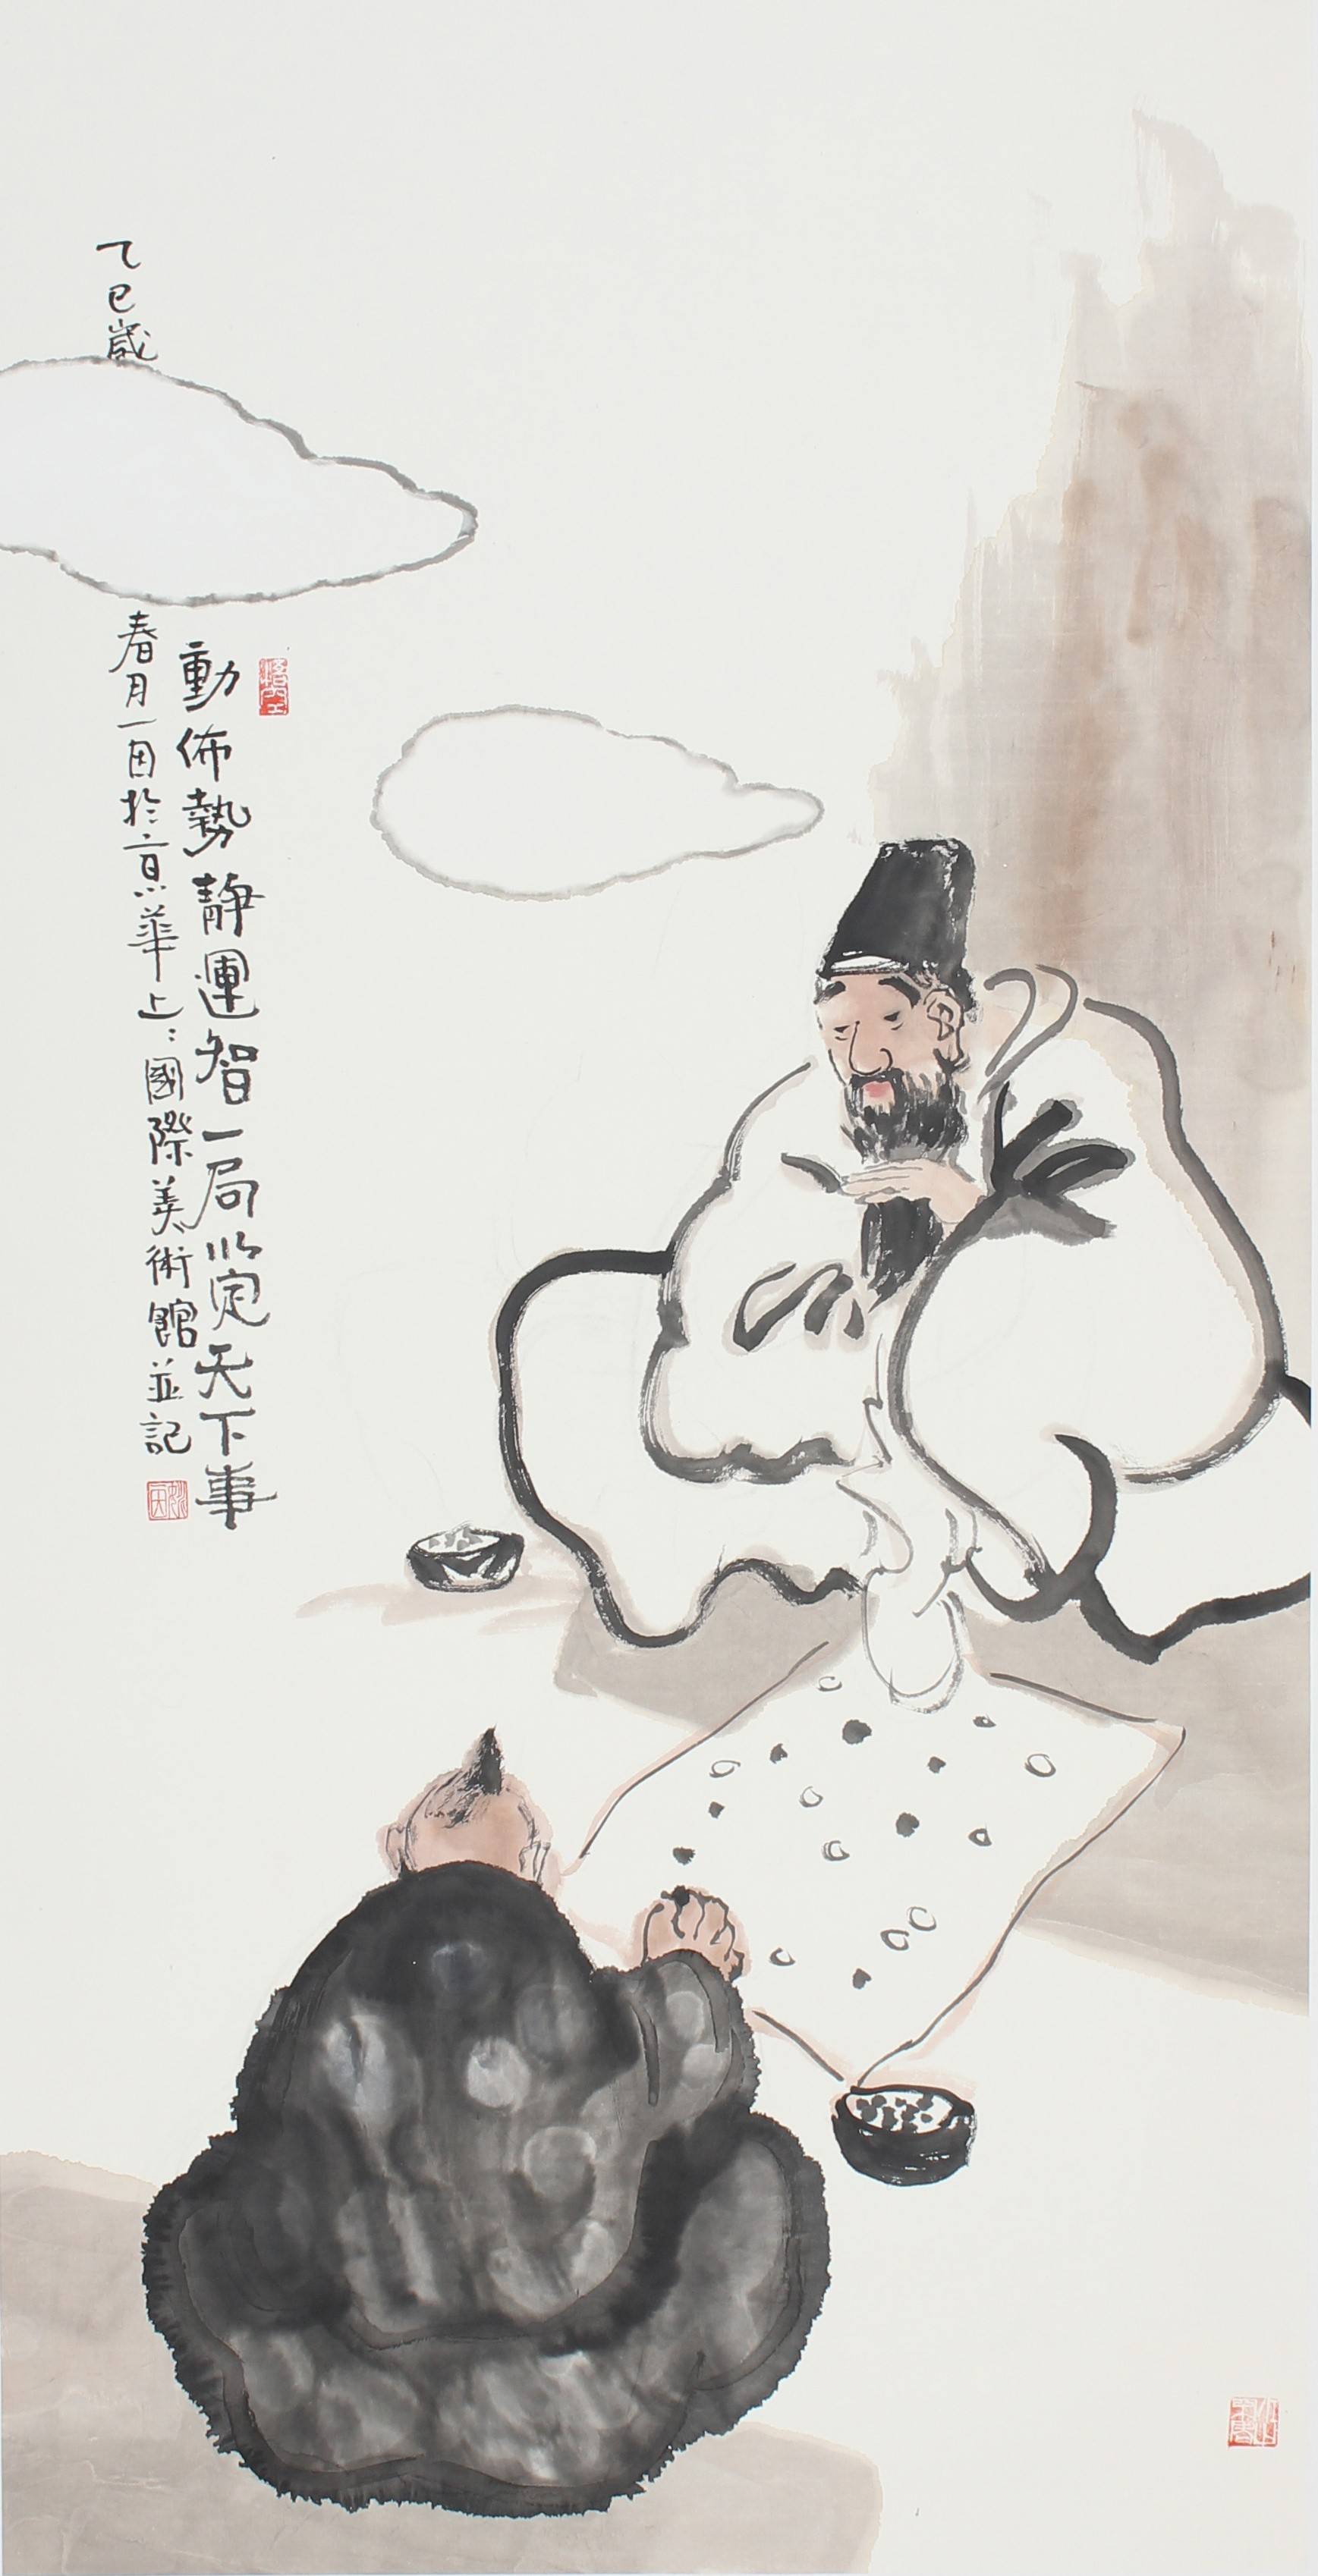 動佈勢靜運智一局以定天下事
乙巳歲春月一因於京華上〻國際美術館並記